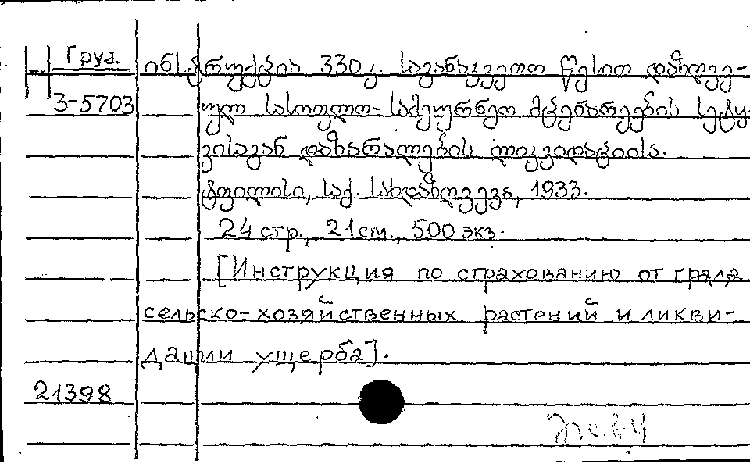 Груз.
3-5703
ინსტრუქცია 330 სავალდებულო წესით დაზღვე-
ულ სასოფლო-სამეურნეო მცენარეების სეტყ-
ვისაგან დაზარალების ლიკვიდაციისა.
ტფილისი, საქ. სახდაზღვევა, 1933.
24 стр., 21 см., 500 экз.
[Инструкция по страхованию от града
сельско-хозяйственных растений и ликви-
дации ущерба].
21398